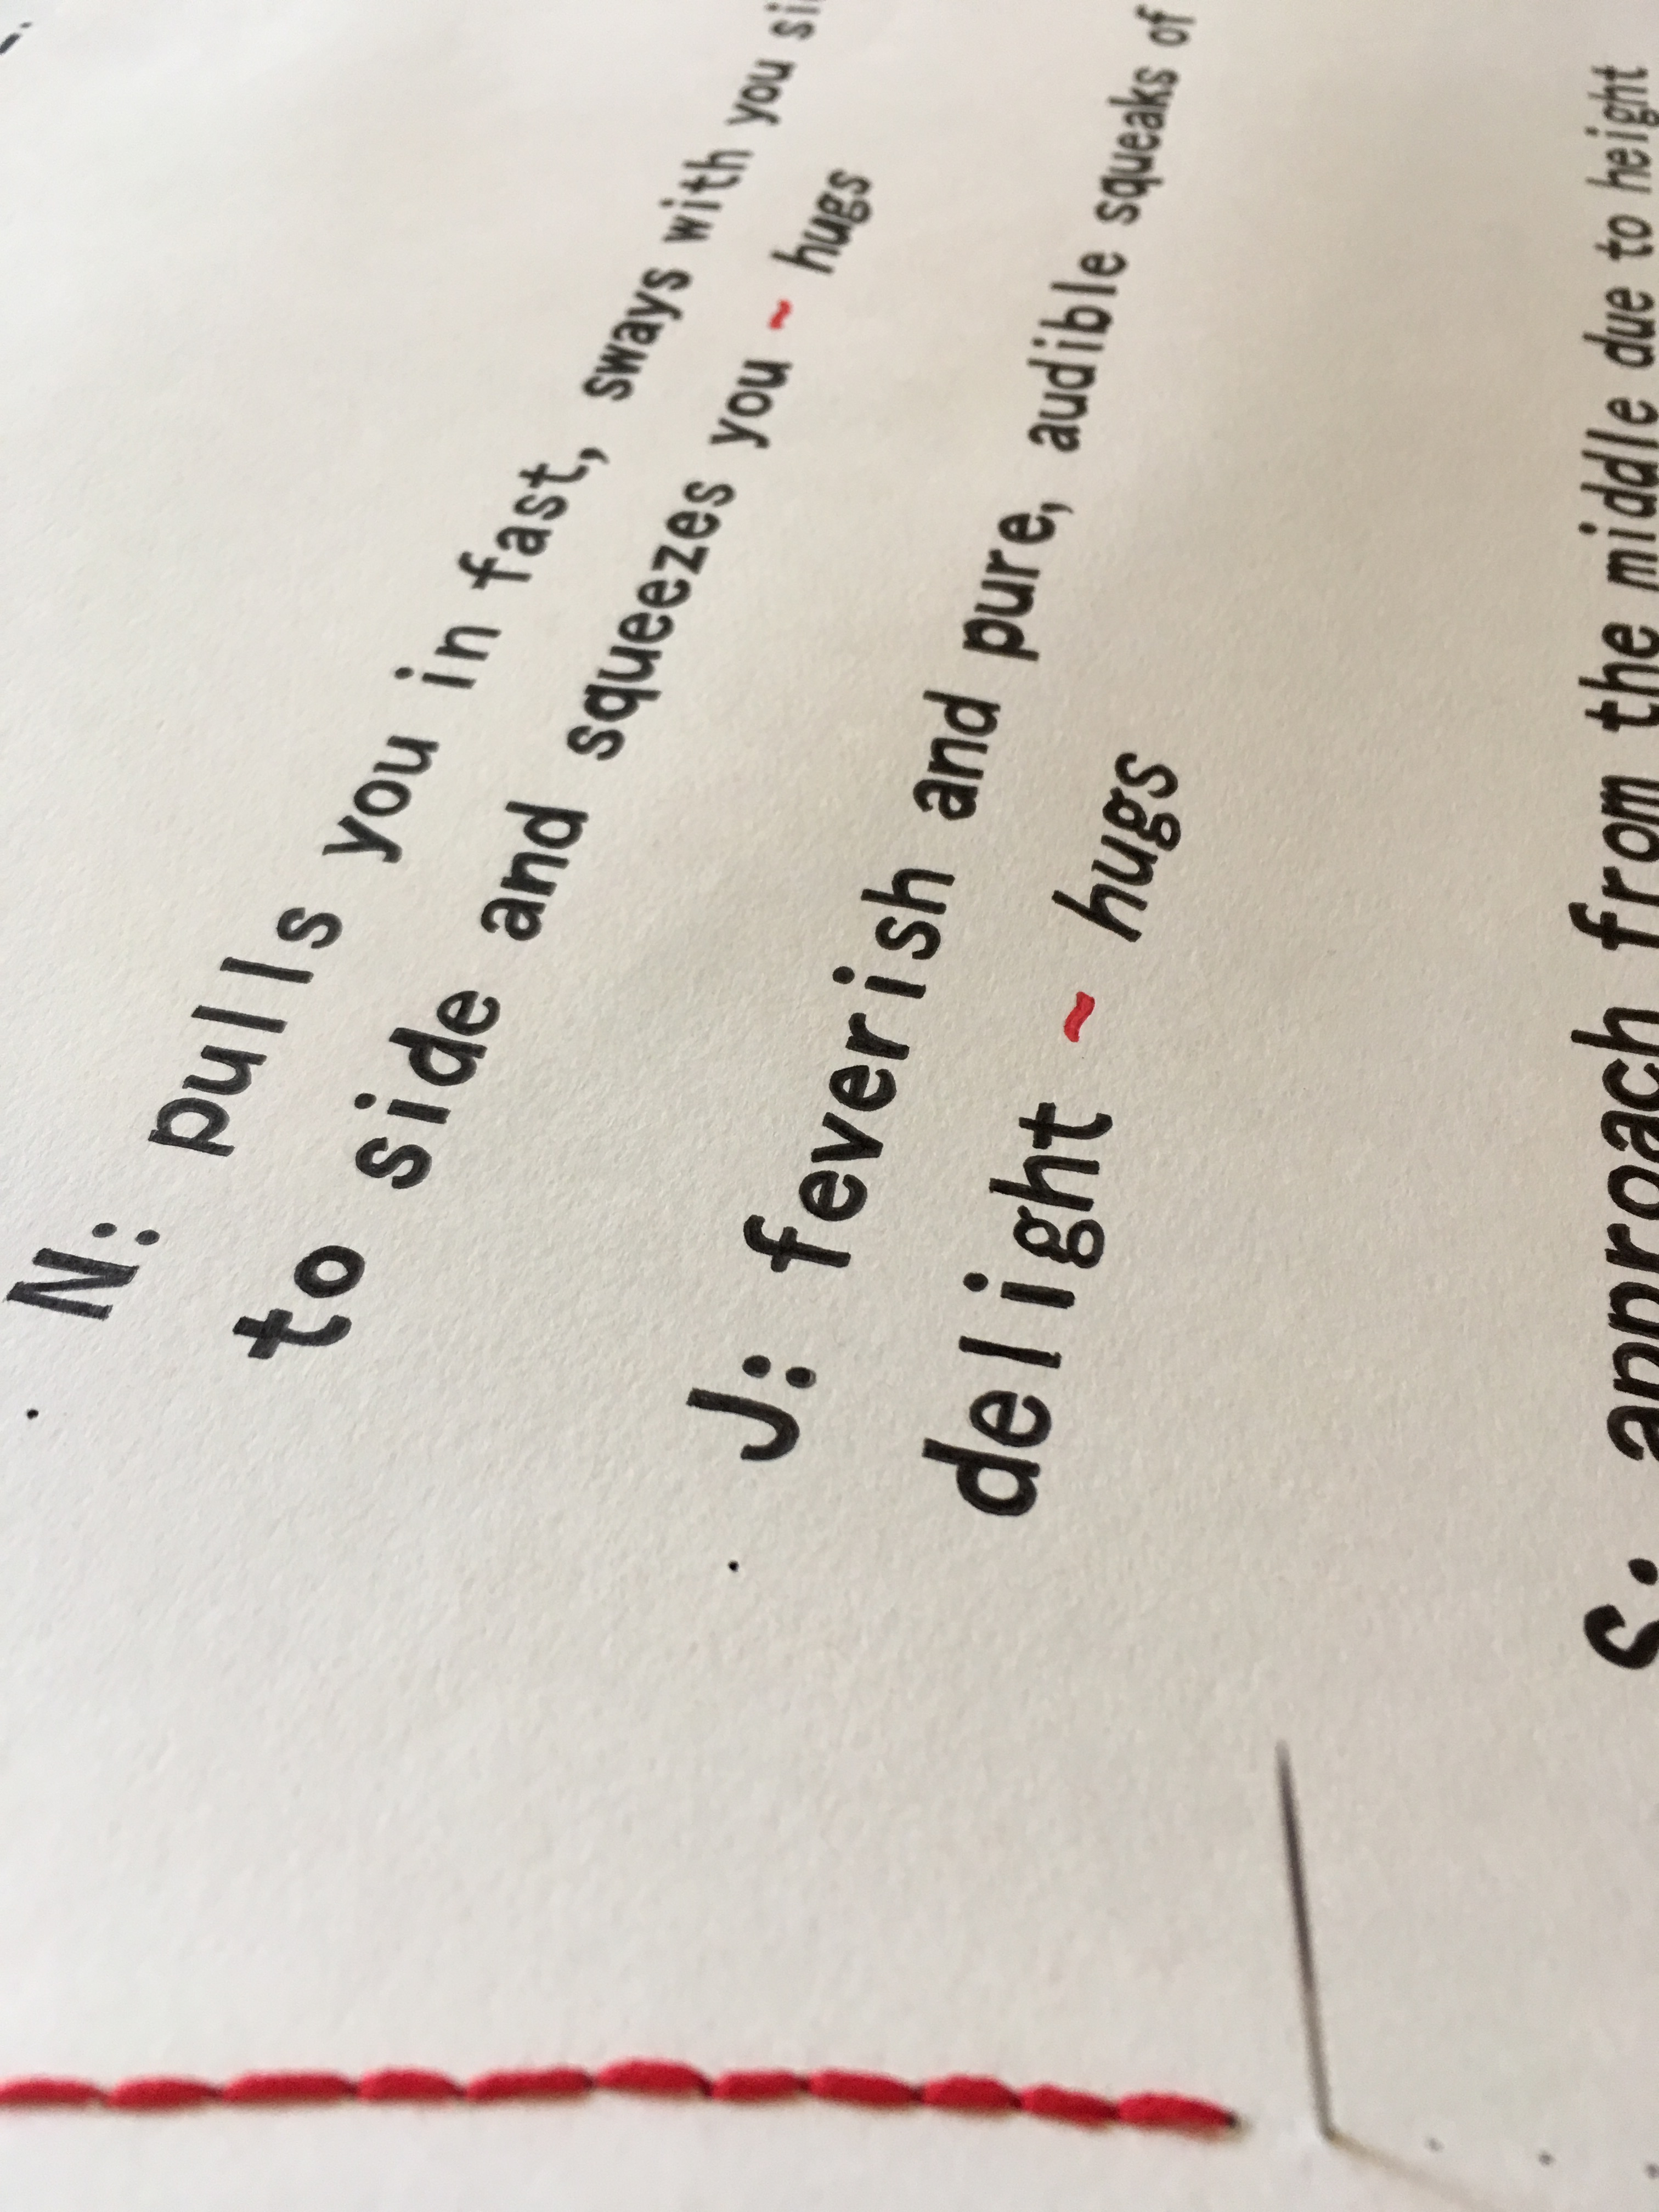 N: pulls you in fast, sways with you
to side and squeezes you ~ hugs
J: feverish and pure, audible squeaks of
delight ~ hugs
S: approach from the middle due to height